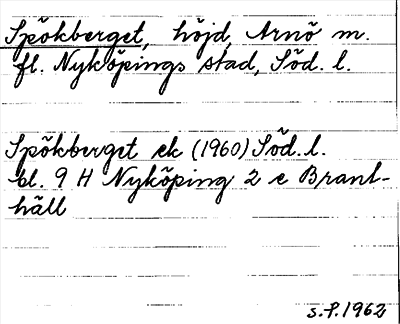 Spökberget, höjd, Arnö m.
fl. Nyköpings stad, Söd. l.
Spökberget ek (1960) Söd. l.
bl. 9 H Nyköping 2 e Brant-
häll
S.P. 1962